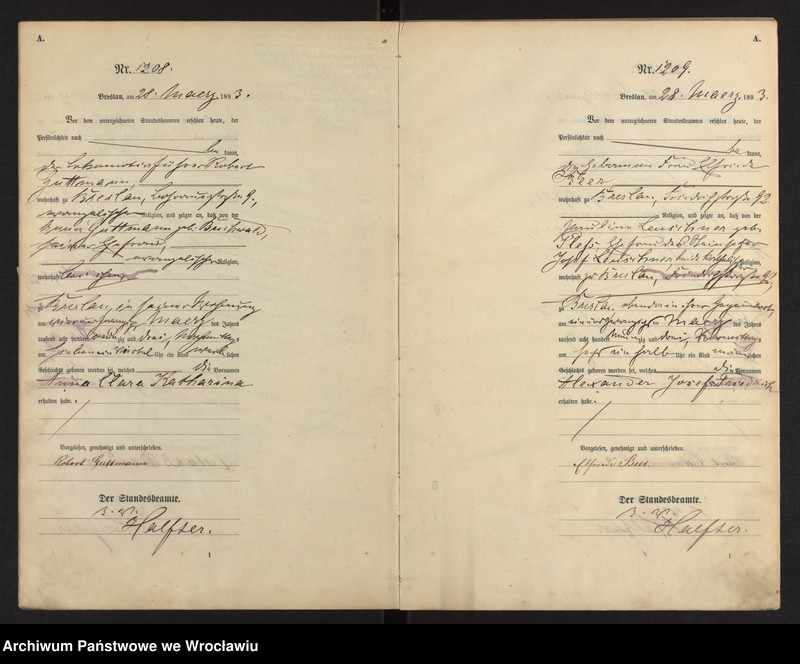 A.
Nr. 1208.
Breslau, am 28. Maerz 1893.
Vor dem unterzeichneten Standesbeamten erschien heute, der
Persönlichkeit nach
kannt,
der Lokomotivführer Robert
Guttmann,
wohnhaft zu Breslau,
evangelischer Religion, und zeigte an, daß von der
Guttmann geb.
seiner Ehefrau,
evangelischer Religion,
wohnhaft bei ihm,
zu Breslau in seiner Wohnung
am Maerz des Jahres
tausend acht hundert neunzig und drei, Nachmittags
um sieben Uhr ein Kind weiblichen
Geschlechts geboren worden sei, welches die Vornamen
Anna Clara Katharina
erhalten habe.
Vorgelesen, genehmigt und unterschrieben.
Robert Guttmann
Der Standesbeamte.
Halfter.
1
A.
Nr. 1209.
Breslau, am 28. Maerz 1893.
Vor dem unterzeichneten Standesbeamten erschien heute, der
Persönlichkeit nach
kannt,
die Hebamme Frau Elfriede
Beer
wohnhaft zu Breslau, Friedrichstraße 92
Religion, und zeigte an, daß von der
Pauline Leuschner geb.
Josef Leuschner
wohnhaft zu Breslau,
zu Breslau, in ihrer Gegenwart,
am einundzwanzigsten Maerz des Jahres
tausend acht hundert neunzig und drei, Vormittags
um sechs ein halb Uhr ein Kind männlichen
Geschlechts geboren worden sei, welches die Vornamen
Alexander Josef Friedrich
erhalten habe.
Vorgelesen, genehmigt und unterschrieben.
Elfriede Beer.
Der Standesbeamte.
Halfter.
1
Archiwum Państwowe we Wrocławiu